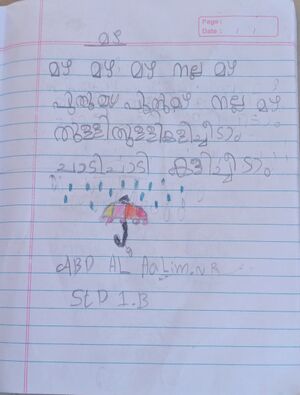 Page:
Date: / /
മഴ
മഴ മഴ മഴ നല്ല മഴ
പുതുമഴ പുതുമഴ നല്ല മഴ
തുള്ളിതുള്ളികളിച്ചീടാം
ചാടിചാടി കളിച്ചീടാം
ABD AL AaLim.N R
StD 1.B